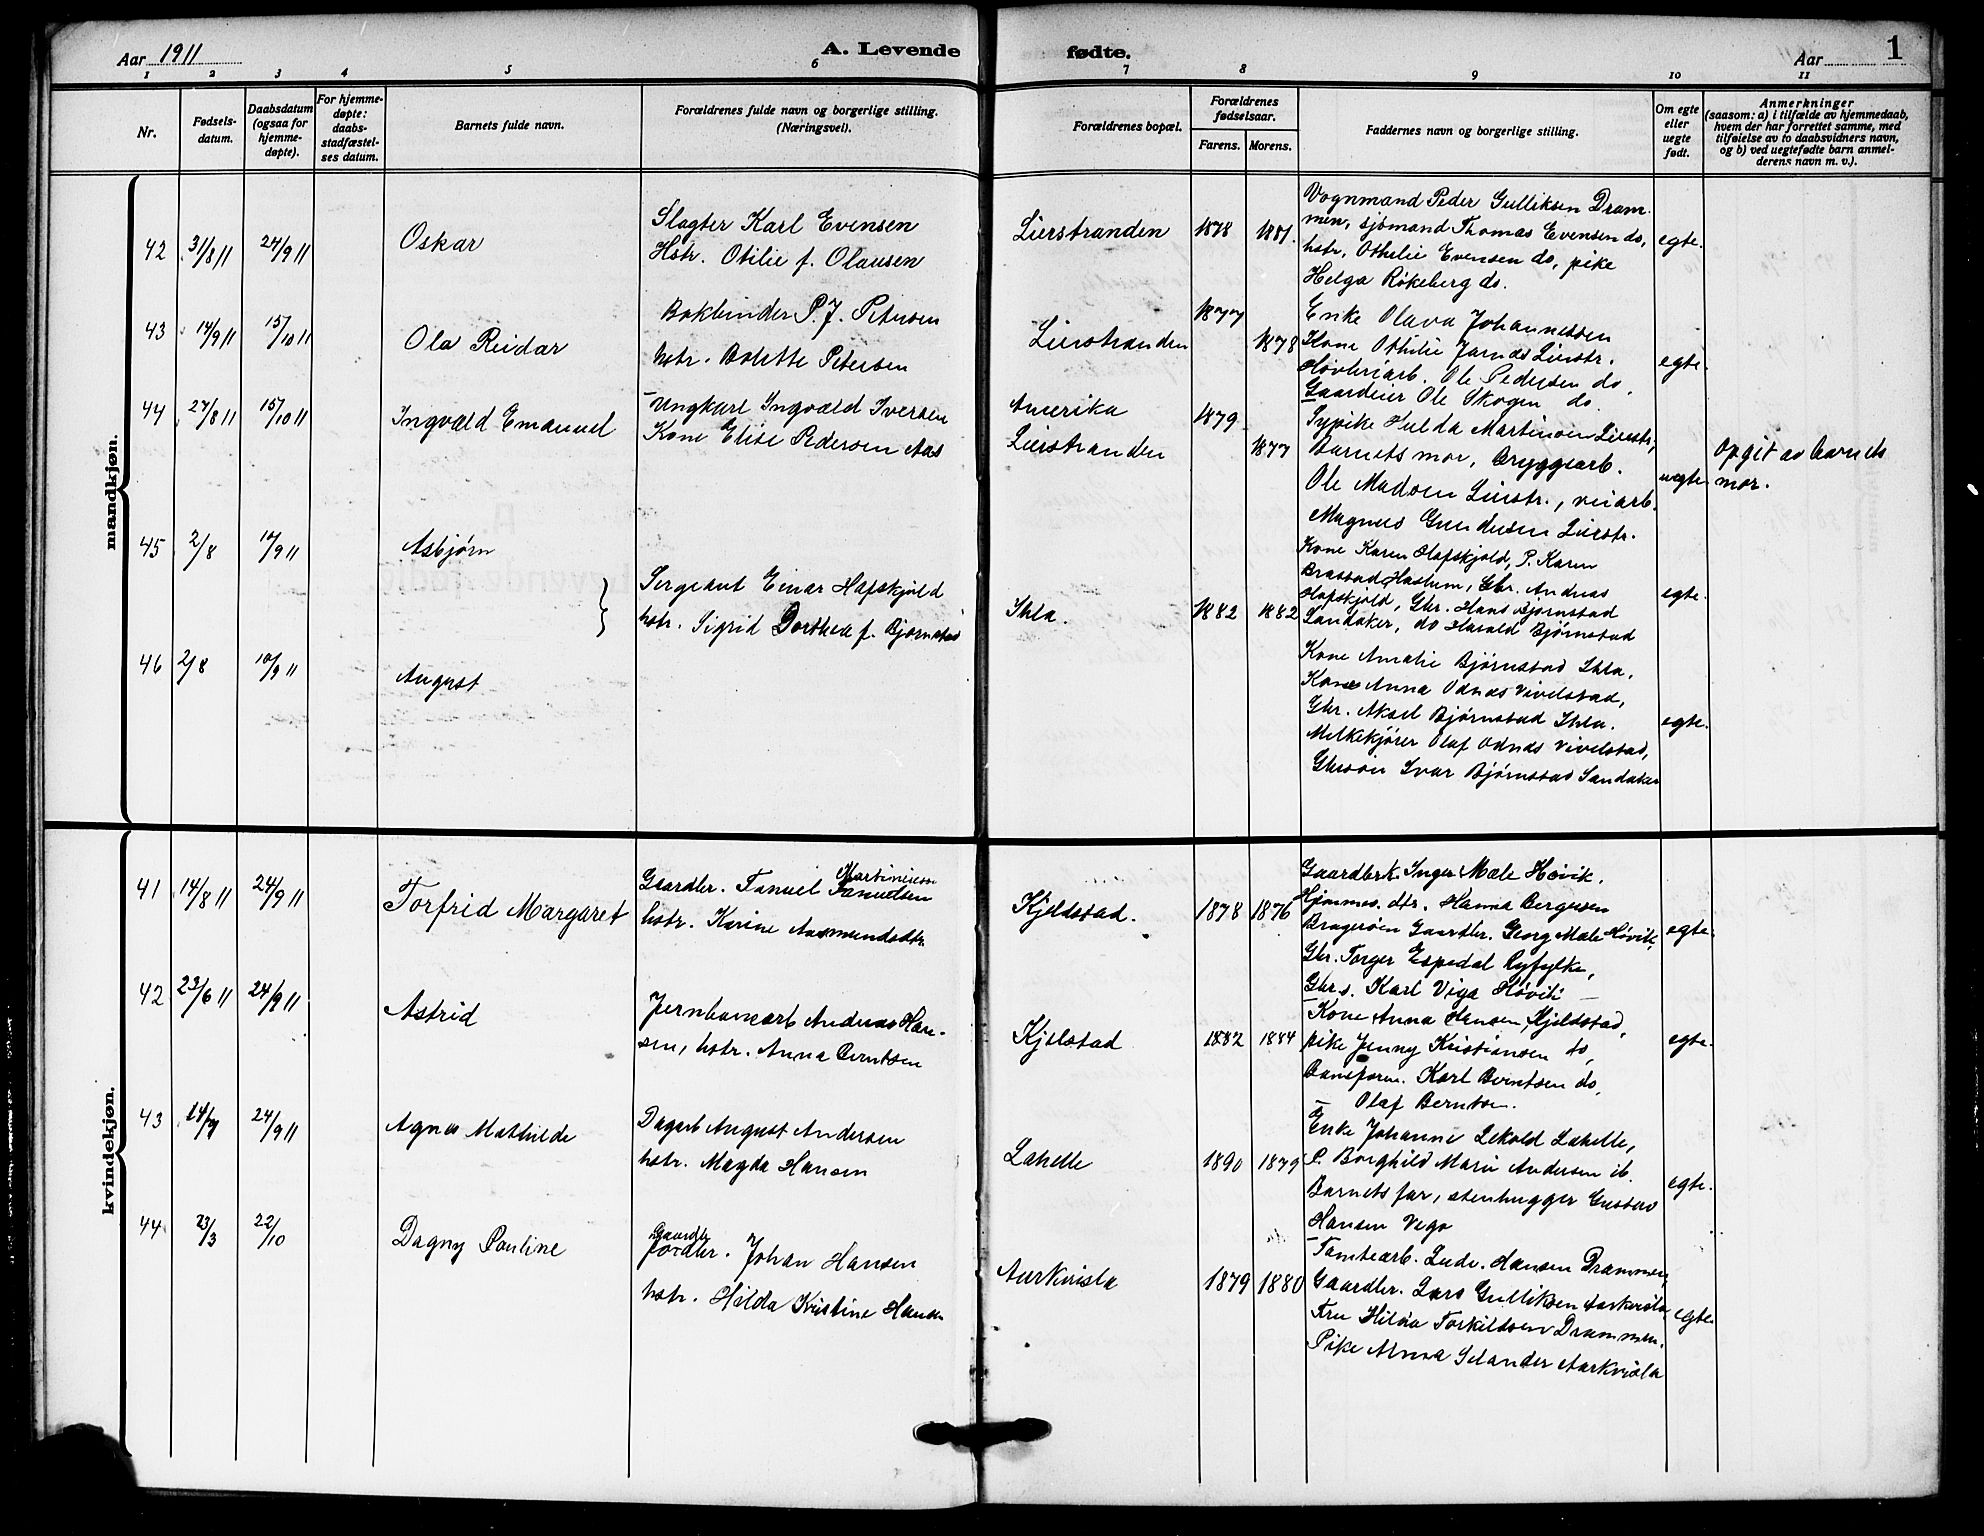 Aar 1911
A. Levende fødte.
Aar
1
1 2 3 4 5 6 7 8 9 10 11
Nr.
Fødsels-
datum.
Daabsdatum
(ogsaa for
hjemme-
døpte).
For hjemme-
døpte:
daabs-
stadfæstel-
ses datum.
Barnets fulde navn.
Forældrenes fulde navn og borgerlige stilling.
(Næringsvei).
Forældrenes bopæl.
Forældrenes
fødselsaar.
Farens. Morens.
Faddernes navn og borgerlige stilling.
Om egte
eller
uegte
født.
Anmerkninger
(saasom: a) i tilfælde av hjemmedaab,
hvem der har forrettet samme, med
tilføielse av to daabsvidners navn,
og b) ved uegtefødte barn anmel-
derens navn m. v.).
mandkjøn.
42 31/8 11 24/9 11 Oskar
Slagter Karl Evensen
Hstr. Otilie f. Olausen
Lierstranden 1878 1881.
Vognmand Peder Gulliksen Dram-
men, sjömand Thomas Evensen do,
hstr. Othelie Evensen do, pike
Helga Røkeberg do.
egte.
43 14/9 11 15/10 11 Ola Reidar
Bokbinder P. J. Petersen
hstr. Bolette Petersen
Lierstranden 1877 1878
Enke Olava Johannessen
Kone Othilie Jarnds Lierstr.
Høvleriarb. Ole Pedersen do.
Gaardeier Ole Skogen do.
egte.
44 27/8 11 15/10 11 Ingvald Emanuel
Ungkarl Ingvald Iversen
Kone Elise Pedersen Aas
Amerika 1879
Lierstranden 1877
Sypike Hulda Martinsen Lierstr,
Barnets mor, bryggearb.
Ole Madsen Lierstr., veiarb.
Magnus Gundersen Lierstr.
uegte
Opgit av barnets
mor.
45 2/8 10/9 11 Asbjørn
Sergeant Einar Hafskjold
hstr. Sigrid Dorthea f. Bjørnstad
Ihla. 1882 1882
Kone Karen Hafskjold, P. Karen
Brastad Haslum, Gbr. Andreas
Hafskjold, Gbr. Hans Bjørnstad
Landaker, do Harald Bjørnstad
egte.
46 2/8 10/9 11 August
Kone Amalie Bjørnstad Ihla.
Kone Anna Odnes Vivelstad,
Gbr. Aksel Bjørnstad Ihla.
Melkekjører Olaf Odnes Vivelstad,
Gbrsøn Ivar Bjørnstad Landaker
egte.
kvindekjøn.
41 14/8 11 24/9 11 Torfrid Margaret
Martiniusen
Gaardbr. Fanuel Fanuelsen
hstr. Karine Aasmundsdtr
Kjeldstad. 1878 1876
Gaardbrk. Inger Mæle Høvik.
Hjemmev. dtr. Hanna Bergesen
Bragerøen Gaardbr. Georg Mæle Høvik,
Gbr. Torger Espedal Ryfylke,
Gbr s. Karl Viga Høvik
egte.
42 23/6 11 24/9 11 Astrid
Jernbanearb Andreas Han-
sen, hstr. Anna Berntsen
Kjelstad 1882 1884
Kone Anna Hansen Kjeldstad,
pike Jenny Kristiansen do,
Baneform. Karl Berntsen do,
Olaf Berntsen.
egte.
43 14/7 24/9 11 Agnes Mathilde
Dagarb August Andersen
hstr. Magda Hansen
Lahelle 1890 1879
Enke Johanne Lekold Lahelle,
P. Borghild Marie Andersen ib.
Barnets far, stenhugger Gustav
Hansen Vego
egte.
44 23/3 22/10 Dagny Pauline
Gaardbr
Jordbr. Johan Hansen
hstr. Hilda Kristine Hansen
Aarkvisla 1879 1880
Tomtearb. Ludv. Hansen Drammen,
Gaardbr. Lars Gulliksen Aarkvisla
Fru Hilda Torkildsen Drammen.
Pike Anna Selander Aarkvisla
egte